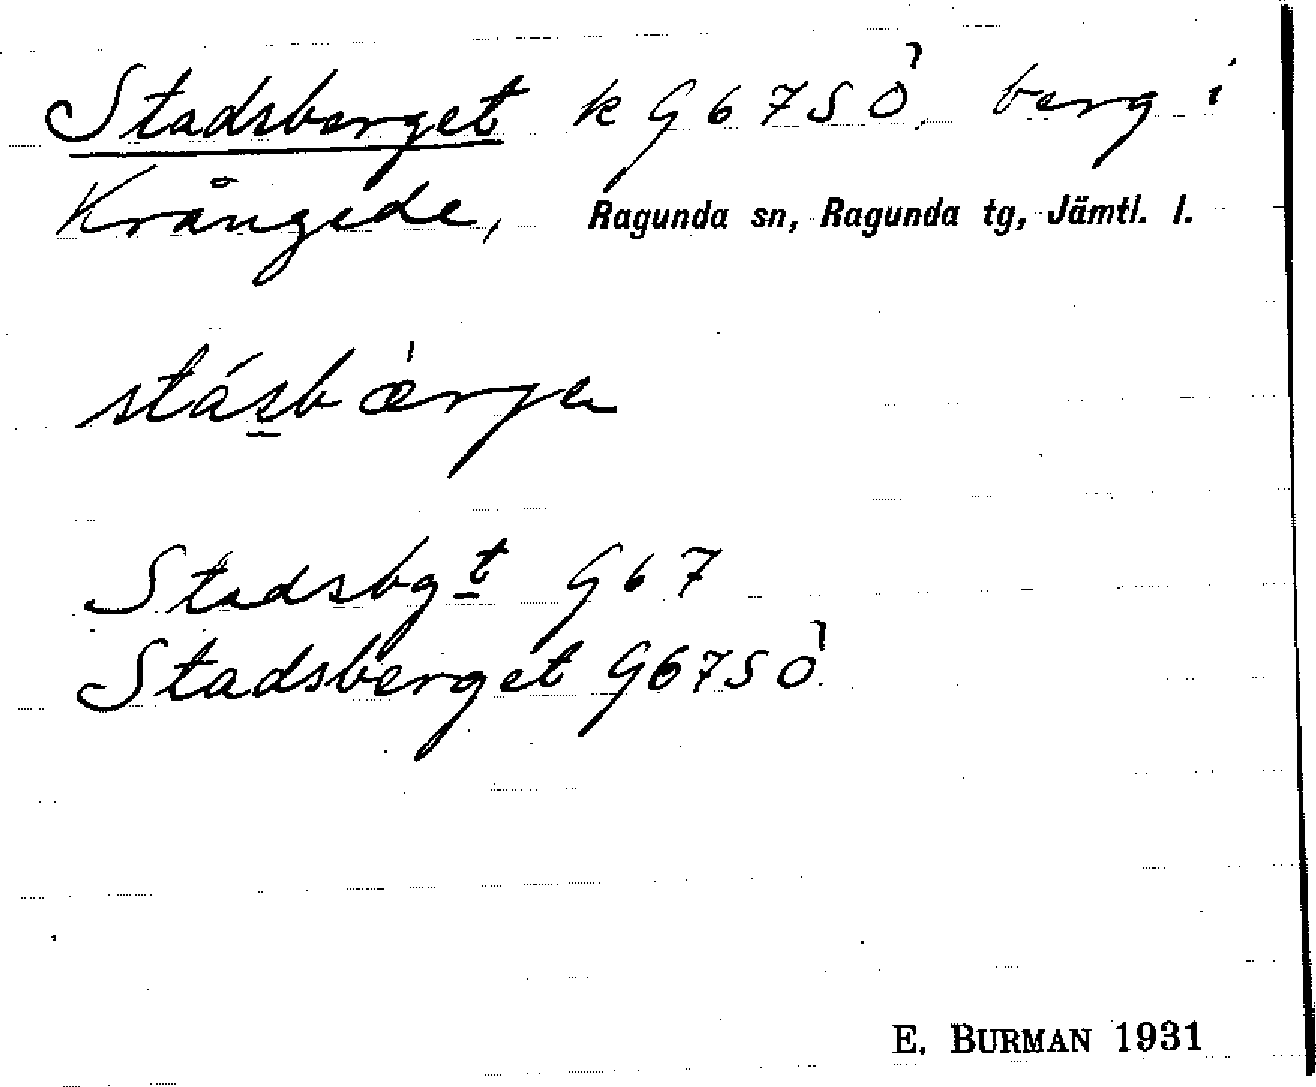 Stadsberget k G67SÖ, berg i
Krångede, Ragunda sn, Ragunda tg, Jämtl. l.
stásbærga
Stadsbgt G67
Stadsberget G67SÖ
E. BURMAN 1931